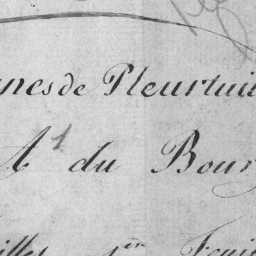 nes de Pleurtuit
A¹ du Bourg
illes 1ère Feuil